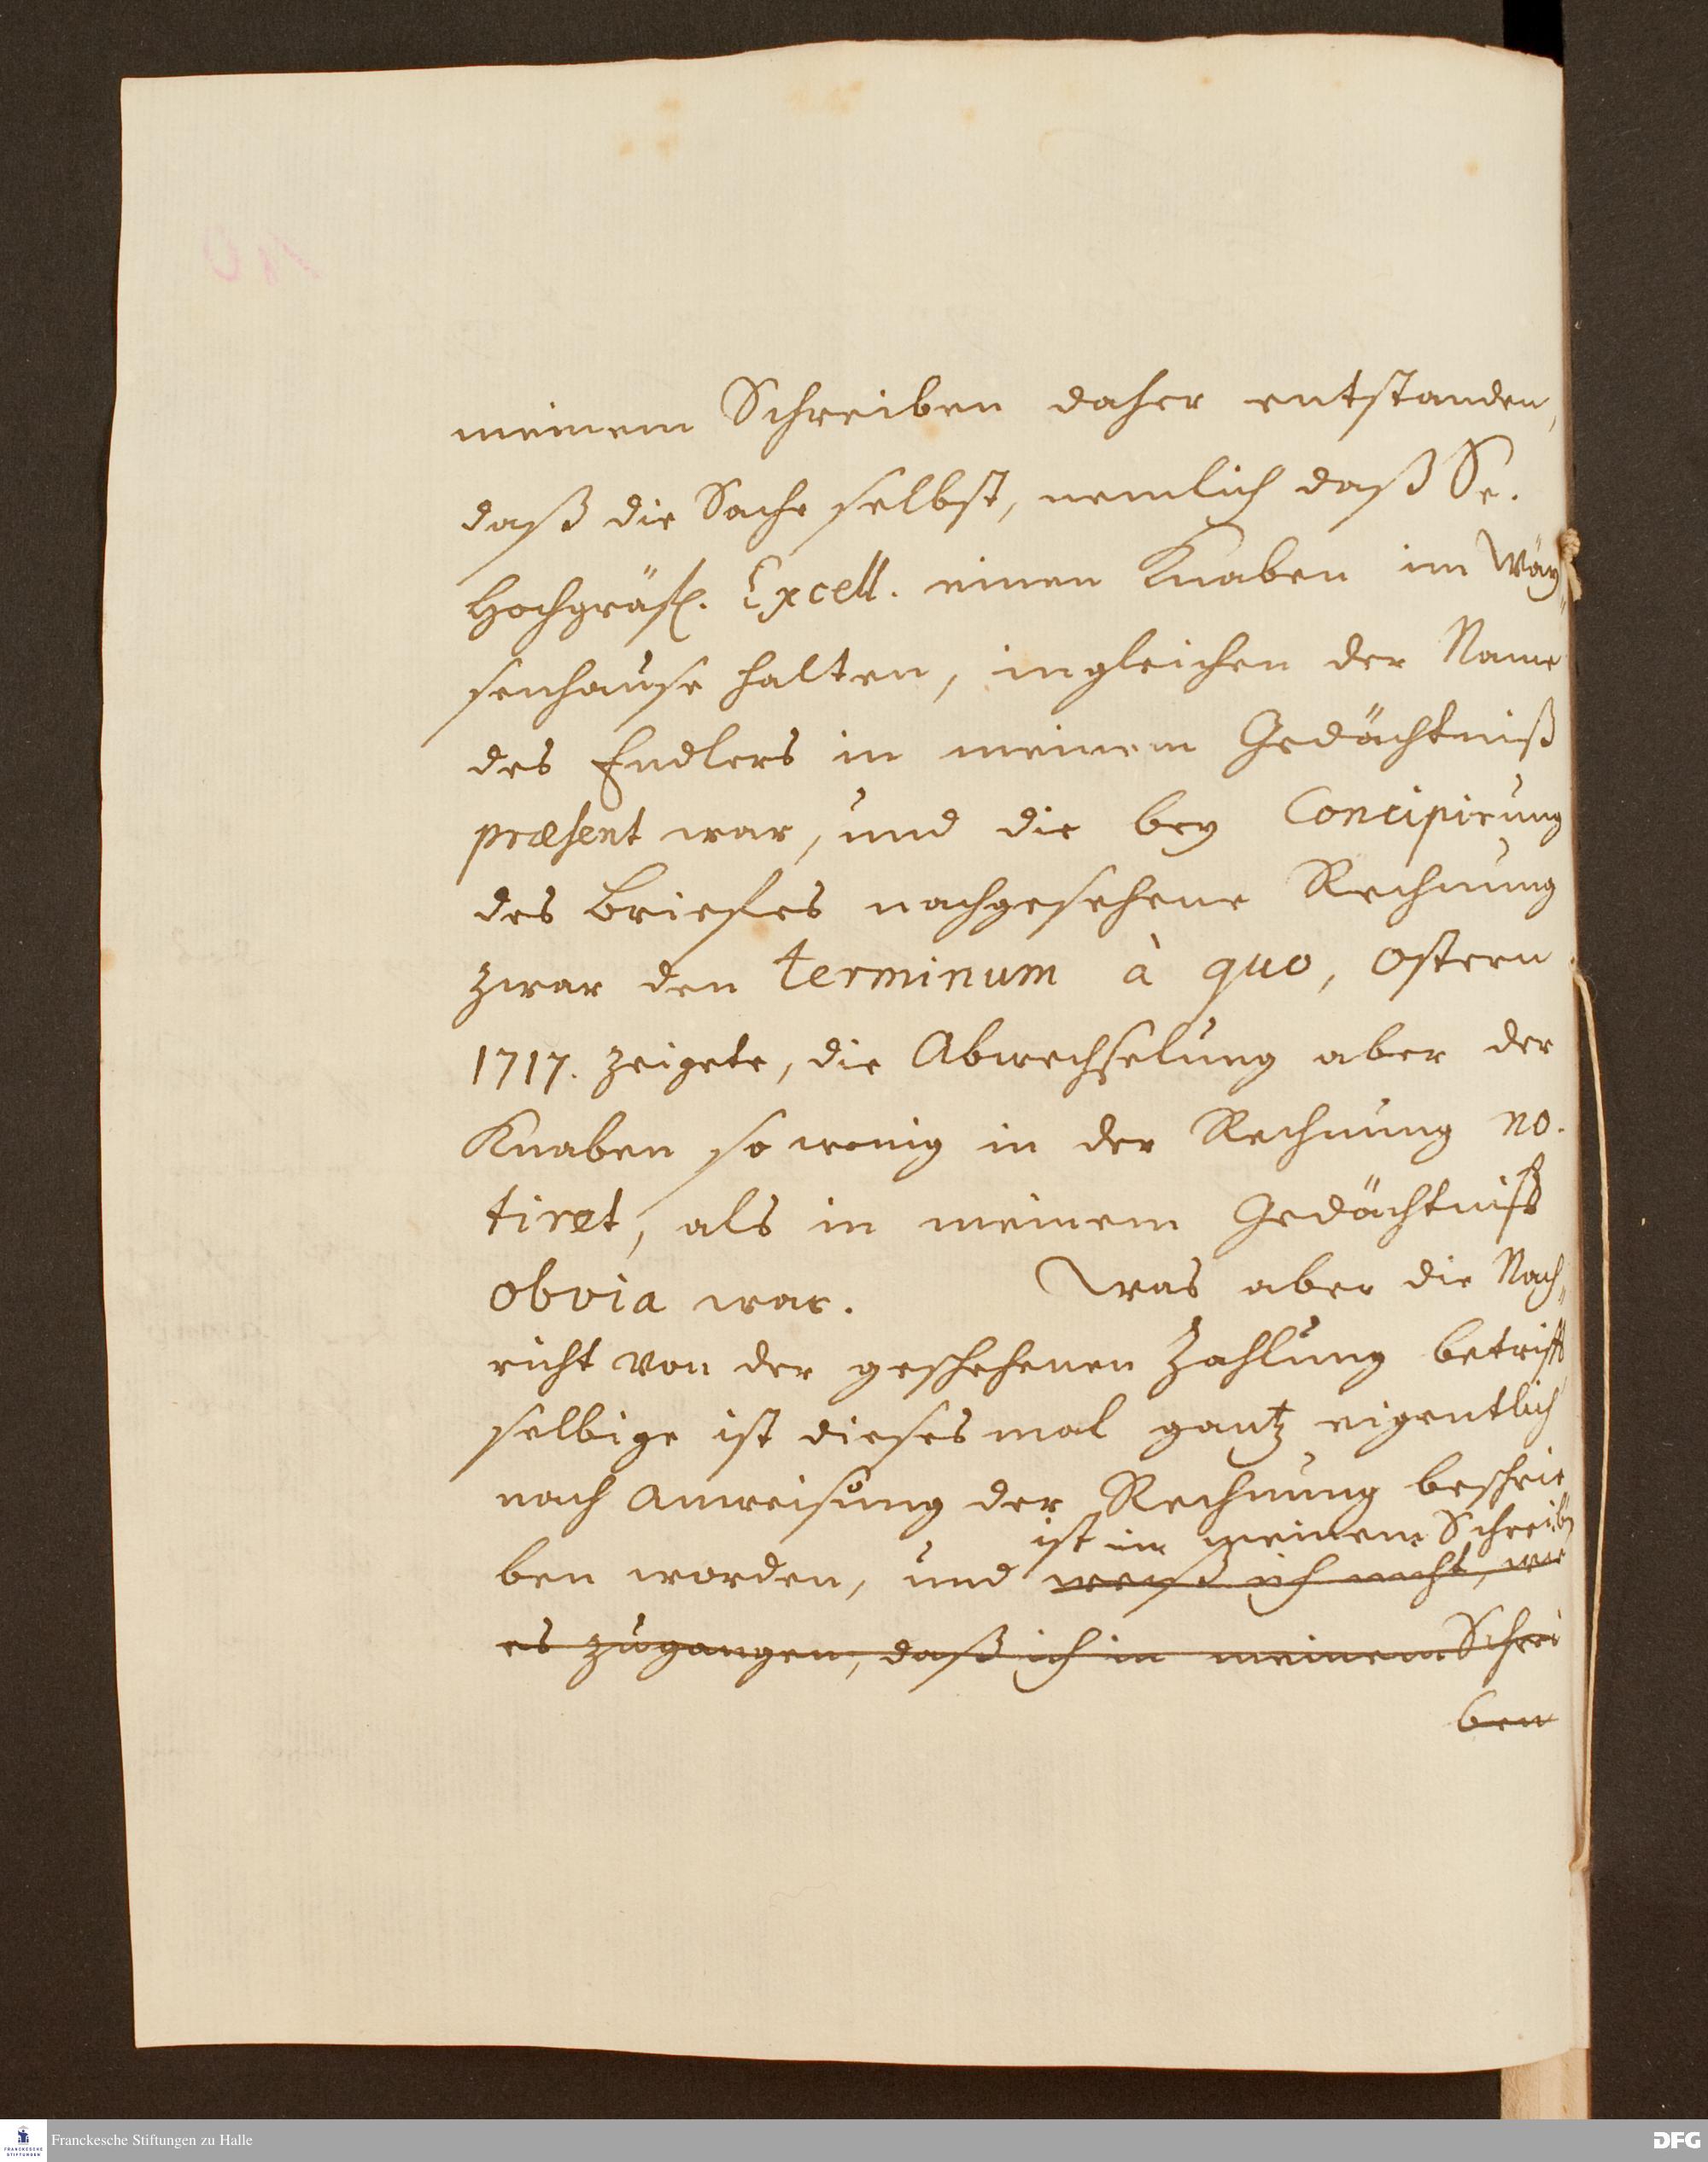 meinem Schreiben daher entstanden,
daß die Sache selbst, nemlich daß Se.
Hochgräfl. Excell. einen Knaben im Wäy„
senhause halten, ingleichen der Name
des Endlers in meinem Gedächtniß
præsent war, und die bey Concipirung
des Briefes nachgesehene Rechnung
zwar den terminum à quo, Ostern
1717. zeigete, die Abwechselung aber der
Knaben so wenig in der Rechnung no-
tiret, als in meinem Gedächtniß
obvia war. Was aber die Nach„
richt von der geschehenen Zahlung betrifft
selbige ist dieses mal gantz eigentlich
nach Anweisung der Rechnung beschrie
ist in meinem Schreibē
ben worden, und weyß ich nicht, wie
es zugangen, daß ich in meinem Schrei
ben
Franckesche Stiftungen zu Halle
DFG